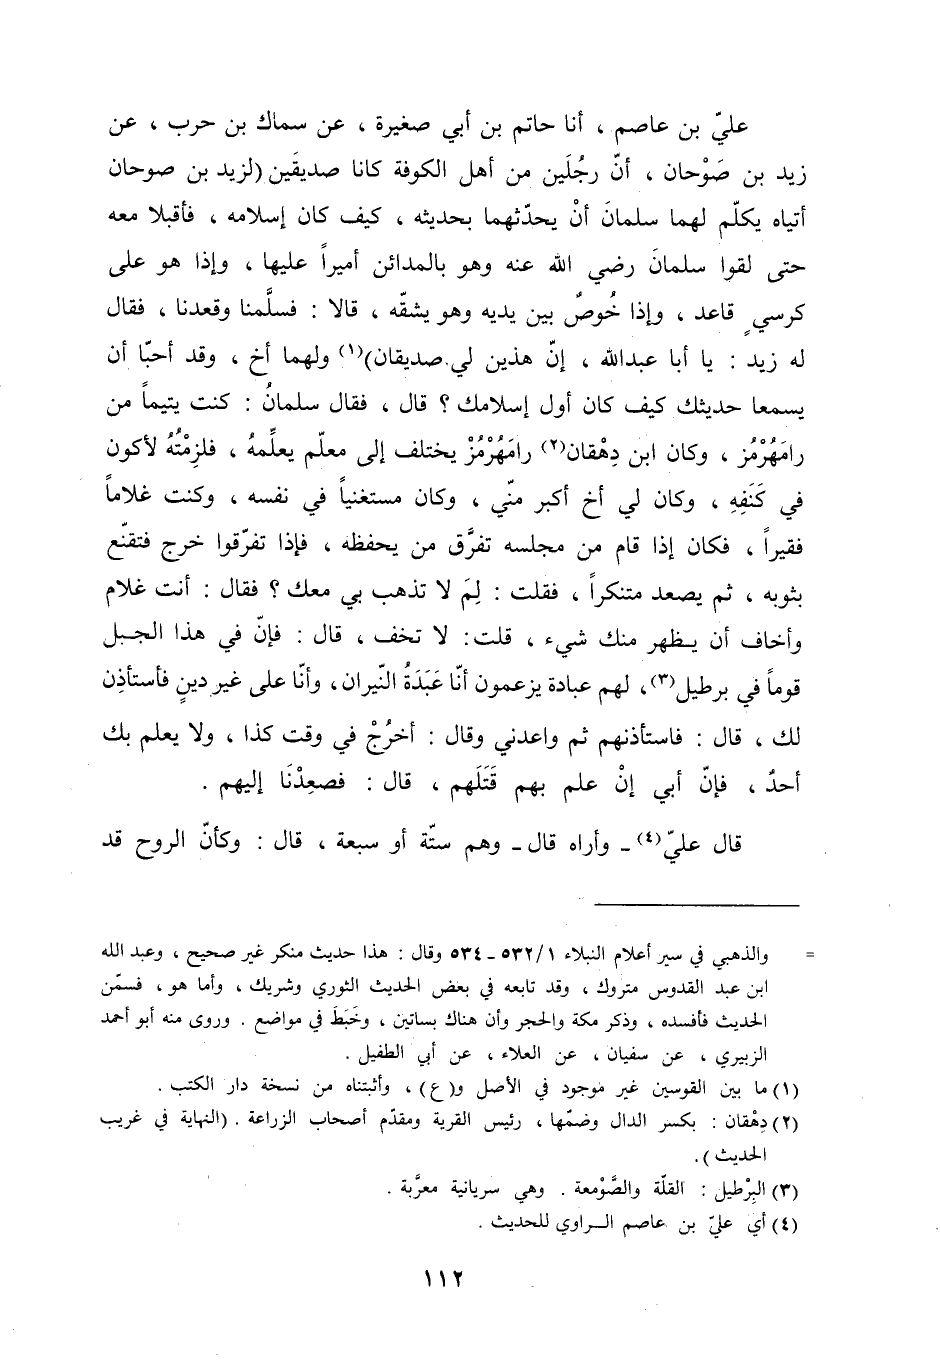 عليّ بن عاصم ، أنا حاتم بن أبي صغيرة ، عن سماك بن حرب ، عن
زيد بن صَوْحان ، أنّ رجُلَين من أهل الكوفة كانا صديقَين (لزيد بن صوحان
أتياه يكلّم لهما سلمانَ أنْ يحدّثهما بحديثه ، كيف كان إسلامه ، فأقبلا معه
حتى لقوا سلمانَ رضي الله عنه وهو بالمدائن أميراً عليها ، وإذا هو على
كرسيٍ قاعد ، وإذا خُوصٌ بين يديه وهو يشقّه ، قالا : فسلَّمنا وقعدنا ، فقال
له زيد : يا أبا عبدالله ، إنّ هذين لي صديقان)(١) ولهما أخ ، وقد أحبّا أن
يسمعا حديثك كيف كان أول إسلامك ؟ قال ، فقال سلمانُ : كنت يتيماً من
رامَهُرْمُز ، وكان ابن دِهْقان(٢) رامَهُرْمُزْ يختلف إلى معلّم يعلِّمهُ ، فلزِمْتُهُ لأكون
في كَنَفِهِ ، وكان لي أخ أكبر منّي ، وكان مستغنياً في نفسه ، وكنت غلاماً
فقيراً ، فكان إذا قام من مجلسه تفرَّق من يحفظه ، فإذا تفرّقوا خرج فتقنّع
بثوبه ، ثم يصعد متنكراً ، فقلت : لِمَ لا تذهب بي معك ؟ فقال : أنت غلام
وأخاف أن يظهر منك شيء ، قلت: لا تخف ، قال : فإنّ في هذا الجبل
قوماً في برطيل(٣)، لهم عبادة يزعمون أنّا عَبَدَةُ النّيران، وأنّا على غير دينٍ فأستأذِن
لك ، قال : فاستأذنهم ثم واعدني وقال : أخرُجْ في وقت كذا ، ولا يعلم بك
أحدٌ ، فإنّ أبي إنْ علم بهم قَتَلَهم ، قال : فصعِدْنَا إليهم .
قال عليّ(٤) ـ وأراه قال ـ وهم ستّة أو سبعة ، قال : وكأنّ الروح قد
= والذهبي في سير أعلام النبلاء ٥٣٢/١ ـ ٥٣٤ وقال : هذا حديث منكر غير صحيح ، وعبد الله
ابن عبد القدوس متروك ، وقد تابعه في بعض الحديث الثوري وشريك ، وأما هو ، فسمّن
الحديث فأفسده ، وذكر مكة والحجر وأن هناك بساتين ، وخَبَطَ في مواضع . وروى منه أبو أحمد
الزبيري ، عن سفيان ، عن العلاء ، عن أبي الطفيل .
(١) ما بين القوسين غير موجود في الأصل و(ع) ، وأثبتناه من نسخة دار الكتب .
(٢) دِهْقان : بكسر الدال وضمّها ، رئيس القرية ومقدّم أصحاب الزراعة . (النهاية في غريب
الحديث) .
(٣) البِرْطيل : القلّة والصَّوْمعة . وهي سريانية معرَّبة .
(٤) أي عليّ بن عاصم الراوي للحديث .
١١٢